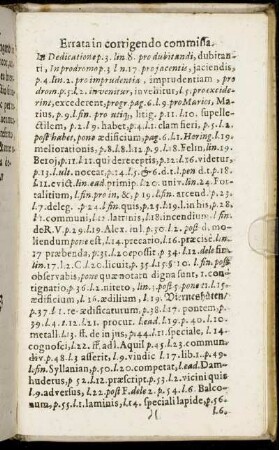 Errata in corrigendo commissa.
In Dedicatione p. 3. lin 8. pro dubitandi, dubitan-
ti, In prodromo p. 3 l. n. 17. pro jacentis, jaciendis,
p. 4. lin. 2. pro imprudentia, imprudentiam, pro
drom. p. 5. l. 2. invenitur, invenitur, l. 5. pro excide-
rint, excederent, progr. pag. 6. l. 9. pro Maries, Ma-
rius, p. 9. l. fin. pro litig. p. 11. l. 10. supelle-
ctilem, p. 2. l. 9. habet, p. 4. l. 1. clam fieri, p. 5. l. 2.
post habet, pone ædificium, p. 6. l. 1. Hering. l. 19.
meliorationis, p. 8. l. 8. l. 12. p. 9. l. 18. Felin, lin. 19.
Beroj, p. 11. l. 11. qui de receptis, p. 12. l. 26. videtur,
p. 13. l. ult. noceat, p. 14. l. 5. & 6. d. t. l. pen d. t. p. 18.
l. 11. evict. lin. ead. primip. l. 20. univ. fin. 24. For-
talitium, l. fin. pro in, &, p. 19. l. fin. arcend. p. 23.
l. 7. deleg. p. 24. l. fin. quis, p. 25. l. 19. l. in his, p. 28.
l. 1. communi, l. 17. latrinis, l. 18. incendium l. fin.
de R. V. p. 29. l. 19. Alex. in l. p. 30. l. 2. post d. mo-
liendum pone est, l. 14. precario, l. 16. præcise l. n.
17 præbenda, p. 31. l. 20. possit p. 34. l. 12. dele sin-
lin. 17. l. 2. C. l. 20. licuit, p. 35 l. 15. 10. l. fin. post
observabis, pone quæ notam digna sunt, 1. con-
tignatio, p. 36. l. 2. niteto, lin. 3. post 5. pone 11. l. 15.
ædificium, l. 16. ædilium, l. 19.
p. 37. l. 1. re-ædificaturum, p. 38. l. 17. pontem, p.
39. l. 4. l. 12. l. 21. procur. l. ead. l. 19. p. 40. l. 10.
metalli l. 13. ff. de in jus, p. 44. l. 11. speciale, l. 14.
cognosci, l. 22. ff. ad l. Aquil p. 45. l. 23. commun.
div. p. 48. l. 3 asserit, l. 9. vindic l. 17. lib. 1. p. 49.
l. fin. Syllanian, p. 50. l. 20. competat, l. ead. Dam-
huderus, p. 52. l. 12. præscript. p. 53. l. 2. vicini quis
l. 9. adversus, l. 22. post F. dele 2. p. 54. l. 6. Balco-
num, p. 55. l. 1. laminis, l. 14. speciali lapide, p. 56.
l. 6.